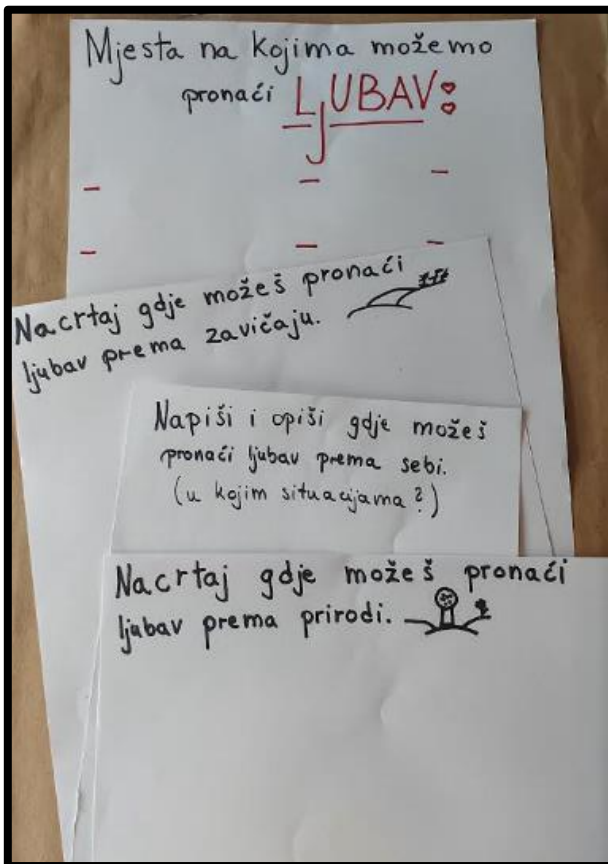 Mjesta na kojima možemo
pronaći LJUBAV:
Nacrtaj gdje možeš pronaći
ljubav prema zavičaju.
Napiši i opiši gdje možeš
pronaći ljubav prema sebi.
(u kojim situacijama?)
Nacrtaj gdje možeš pronaći
ljubav prema prirodi.